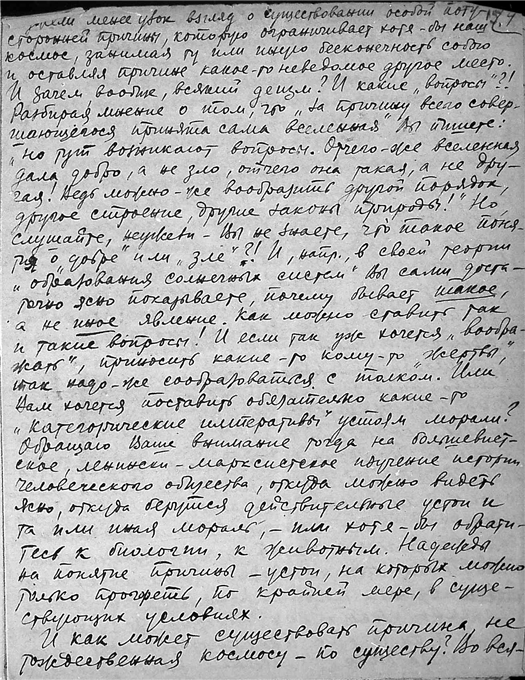 менее узок взгляд о существовании особой поту-
сторонней причины, которую ограничивает хотя-бы наш
космос, занимая ту или иную бесконечность собою
и оставляя причине какое-то неведомое другое место.
И зачем вообще, всякий деизм? И какие „вопросы"?!
Разбирая мнение о том, что „за причину всего совер-
шающегося принята сама вселенная" Вы пишете:
„но тут возникают вопросы. Отчего-же вселенная
дала добро, а не зло, отчего она такая, а не дру-
гая! Ведь можно-же вообразить другой порядок,
другое строение, другие законы природы!" Но
слушайте, неужели - Вы не знаете, что такое поня-
тия о „добре" или „зле"?! И, напр., в своей теории
„образования солнечных систем" Вы сами доста-
точно ясно показываете, почему бывает такое,
а не иное явление. Как можно ставить так
и такие вопросы! И если так уж хочется „вообра-
жать", приносить какие-то кому-то „жертвы,"
так надо-же сообразоваться с толком. Или
Вам хочется поставить обязательно какие-то
„категорические императивы" устоям морали?
Обращаю Ваше внимание тогда на большевист-
ское, ленински-марксистское изучение истории
человеческого общества, откуда можно видеть
ясно, откуда берутся действительные устои и
та или иная мораль, - или хотя-бы обрати-
тесь к биологии, к животным. Надежды
на понятие причины - устои, на которых можно
только прогореть, по крайней мере, в суще-
ствующих условиях.
И как может существовать причина, не
тождественная космосу - по существу? Во вся-